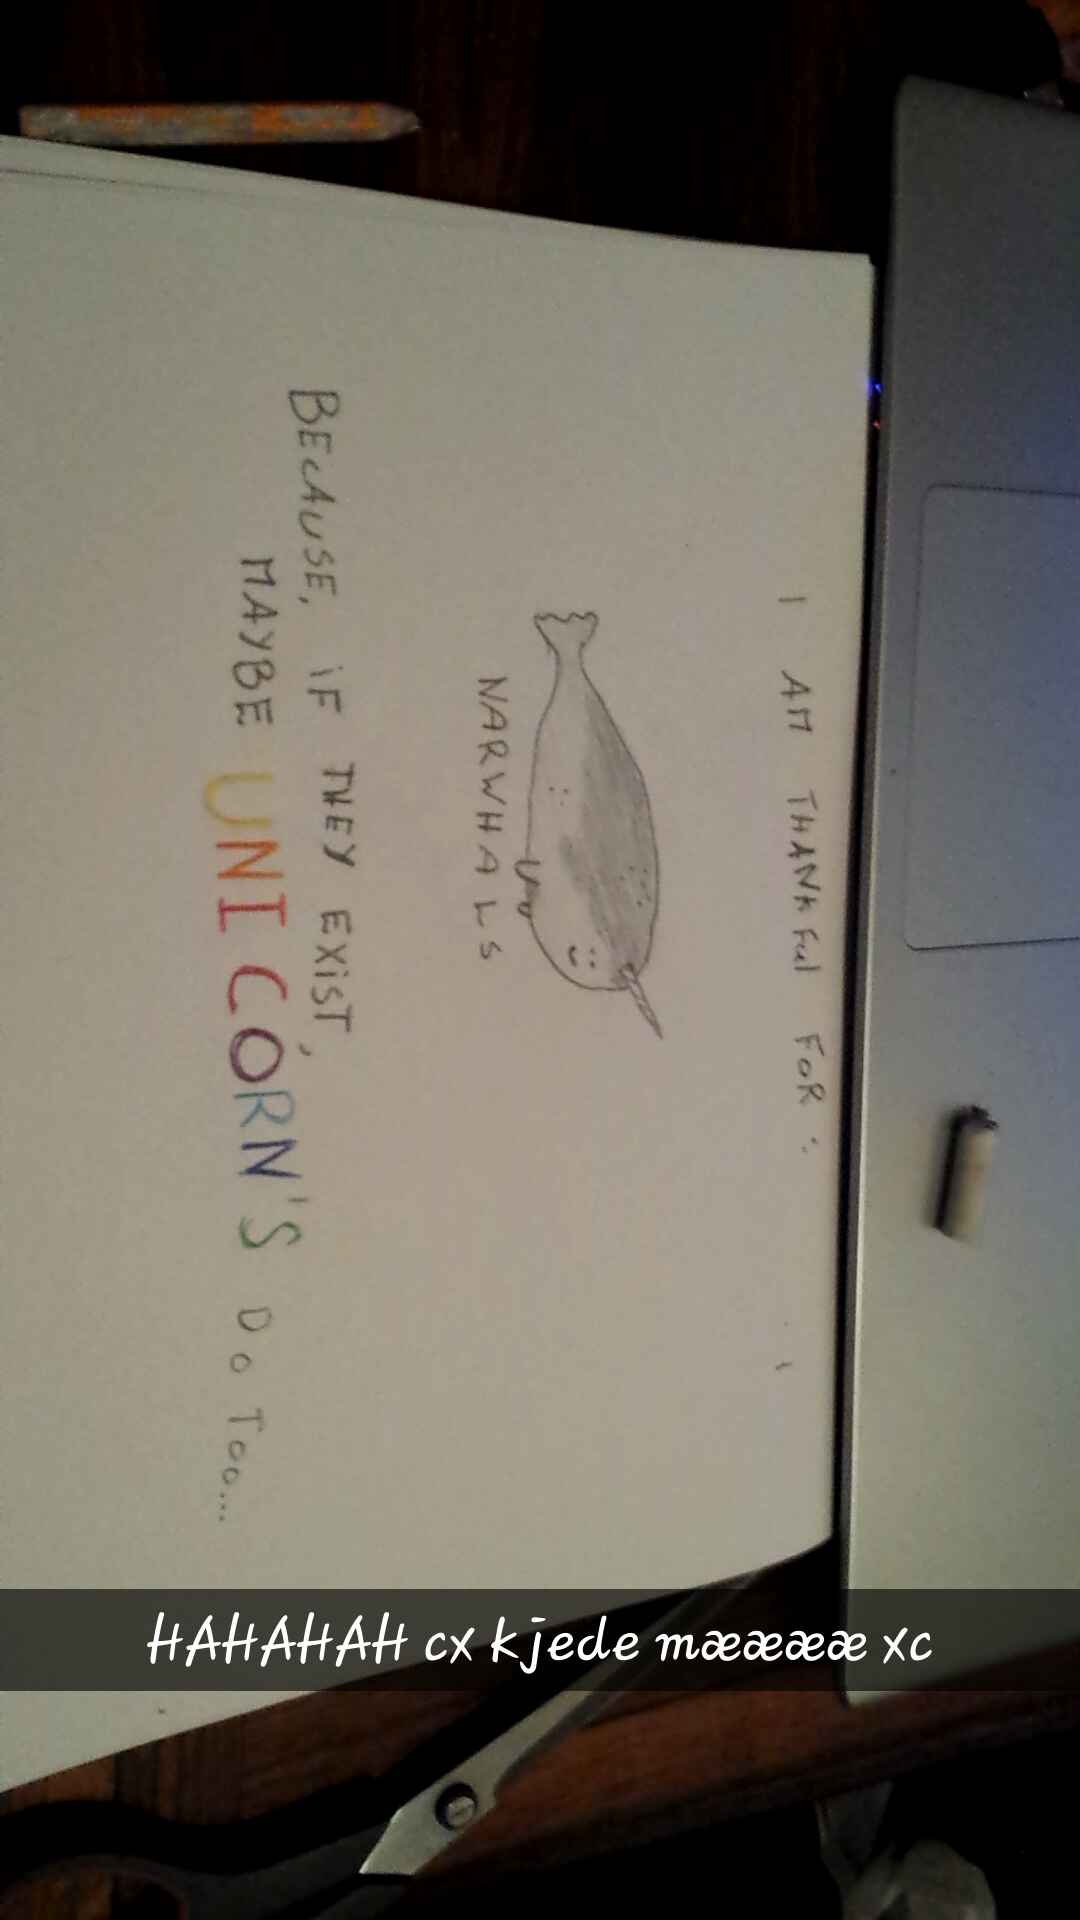 I AM THANKFUL FOR:
NARWHALS
BECAUSE, IF THEY EXIST,
MAYBE UNICORN'S DO TOO...
HAHAHAH cx kjede mæææææ xc